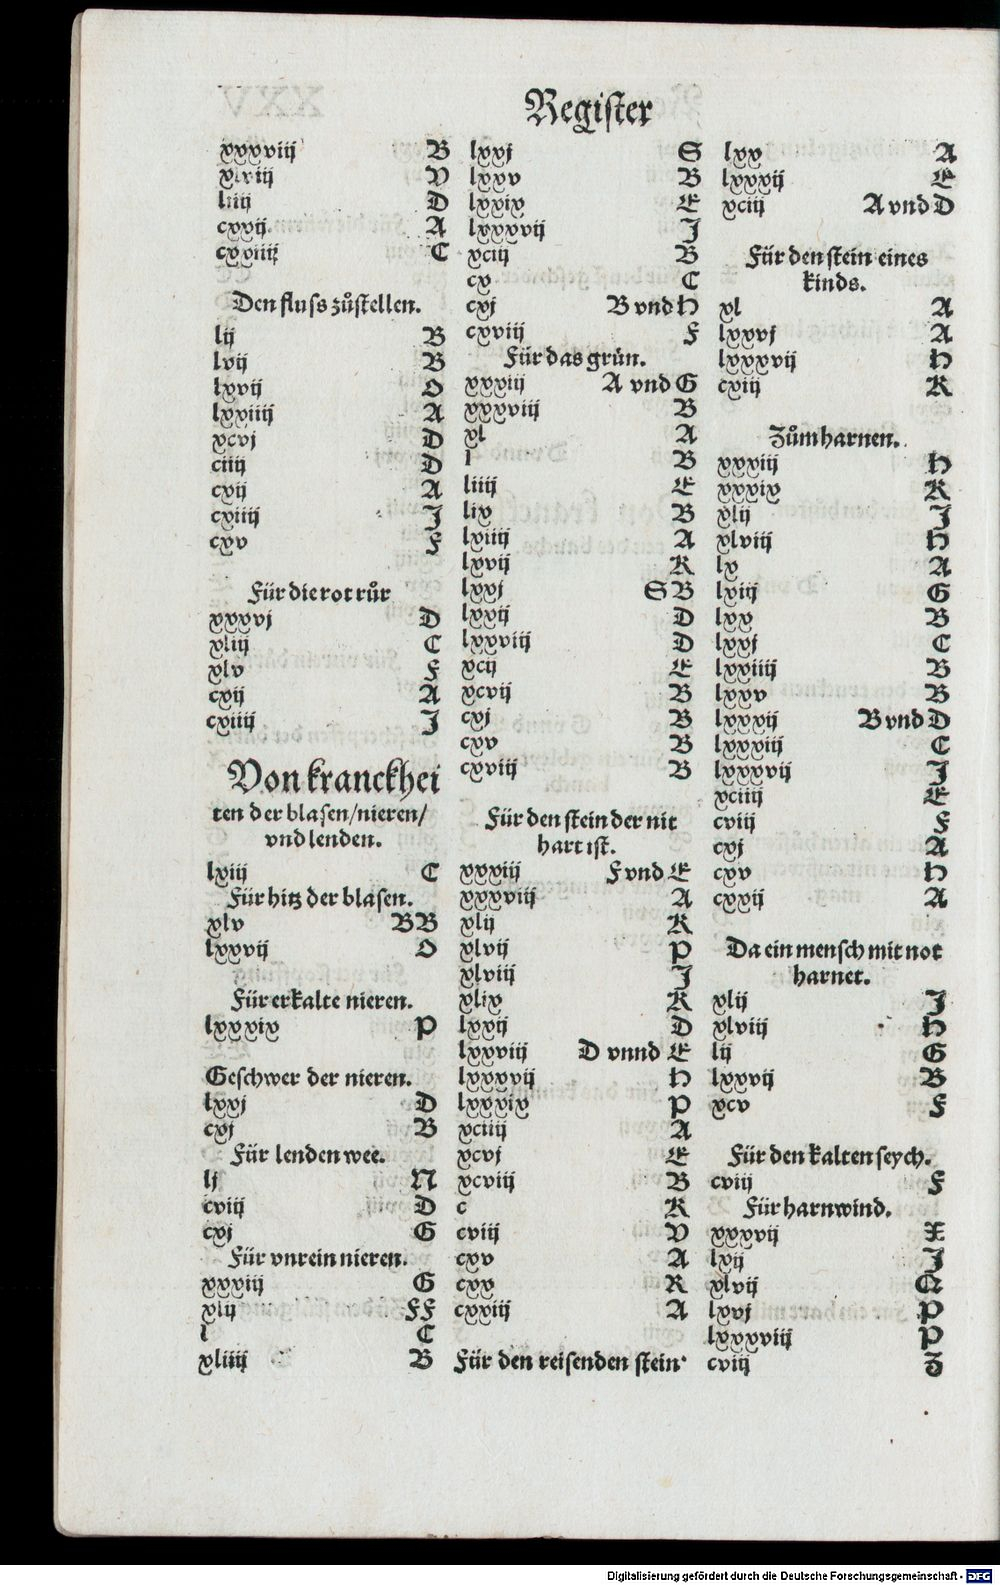 Register
xxxviij B
xlviij V
liiij D
cxvij A
cxxiiij C
Den fluſs zůſtellen.
lij B
lvij B
lxvij O
lxxiiij A
xcvj D
ciiij D
cvij A
cxiiij J
cxv F
Für die rot růr
xxxvj D
xliij C
xlv F
cxij A
cxiiij J
Von kranckhei
ten der blaſen/nieren/
vnd lenden.
lxiij C
Für hitz der blaſen.
xlv BB
lxxvij O
Für erkalte nieren.
lxxxix P
Geſchwer der nieren.
lxxj D
cxj B
Für lenden wee.
lj N
cviij D
cxj G
Für vnrein nieren.
xxxiij G
xlij FF
l C
xliiij B
lxxj S
lxxv B
lxxix E
lxxxvij J
xciij B
cx C
cxj B vnd H
cxviij F
Für das grün.
xxxiij A vnd G
xxxviij B
xl A
l B
liiij E
lix B
lxiiij A
lxvij K
lxxj S B
lxxij D
lxxviij D
xcij E
xcvij B
cxj B
cxv B
cxviij B
Für den ſtein der nit
hart iſt.
xxxiij F vnd E
xxxviij A
xlij K
xlvij P
xlviij J
xlix K
lxxij D
lxxviij D vnnd E
lxxxvij H
lxxxix P
xciiij A
xcvj E
xcviij B
c K
cviij V
cxv A
cxx R
cxxiij A
Für den reiſenden ſtein
lxx A
lxxxij E
xciij A vnd D
Für den ſtein eines
kinds.
xl A
lxxvj A
lxxxvij H
cxiij K
Zům harnen.
xxxiij H
xxxix K
xlij J
xlviij H
lx A
lxiij G
lxx B
lxxj C
lxxiiij B
lxxv B
lxxxij B vnd D
lxxxiij C
lxxxvij J
xciiij E
cviij F
cxj A
cxv H
cxxij A
Da ein menſch mit not
harnet.
xlij J
xlviij H
lij G
lxxvij B
xcv F
Für den kalten ſeych.
cviij F
Für harnwind.
xxxvij X
lxij J
xlvij Q
lxvj P
lxxxviij P
cviij Z
Digitalisierung gefördert durch die Deutsche Forschungsgemeinschaft - DFG